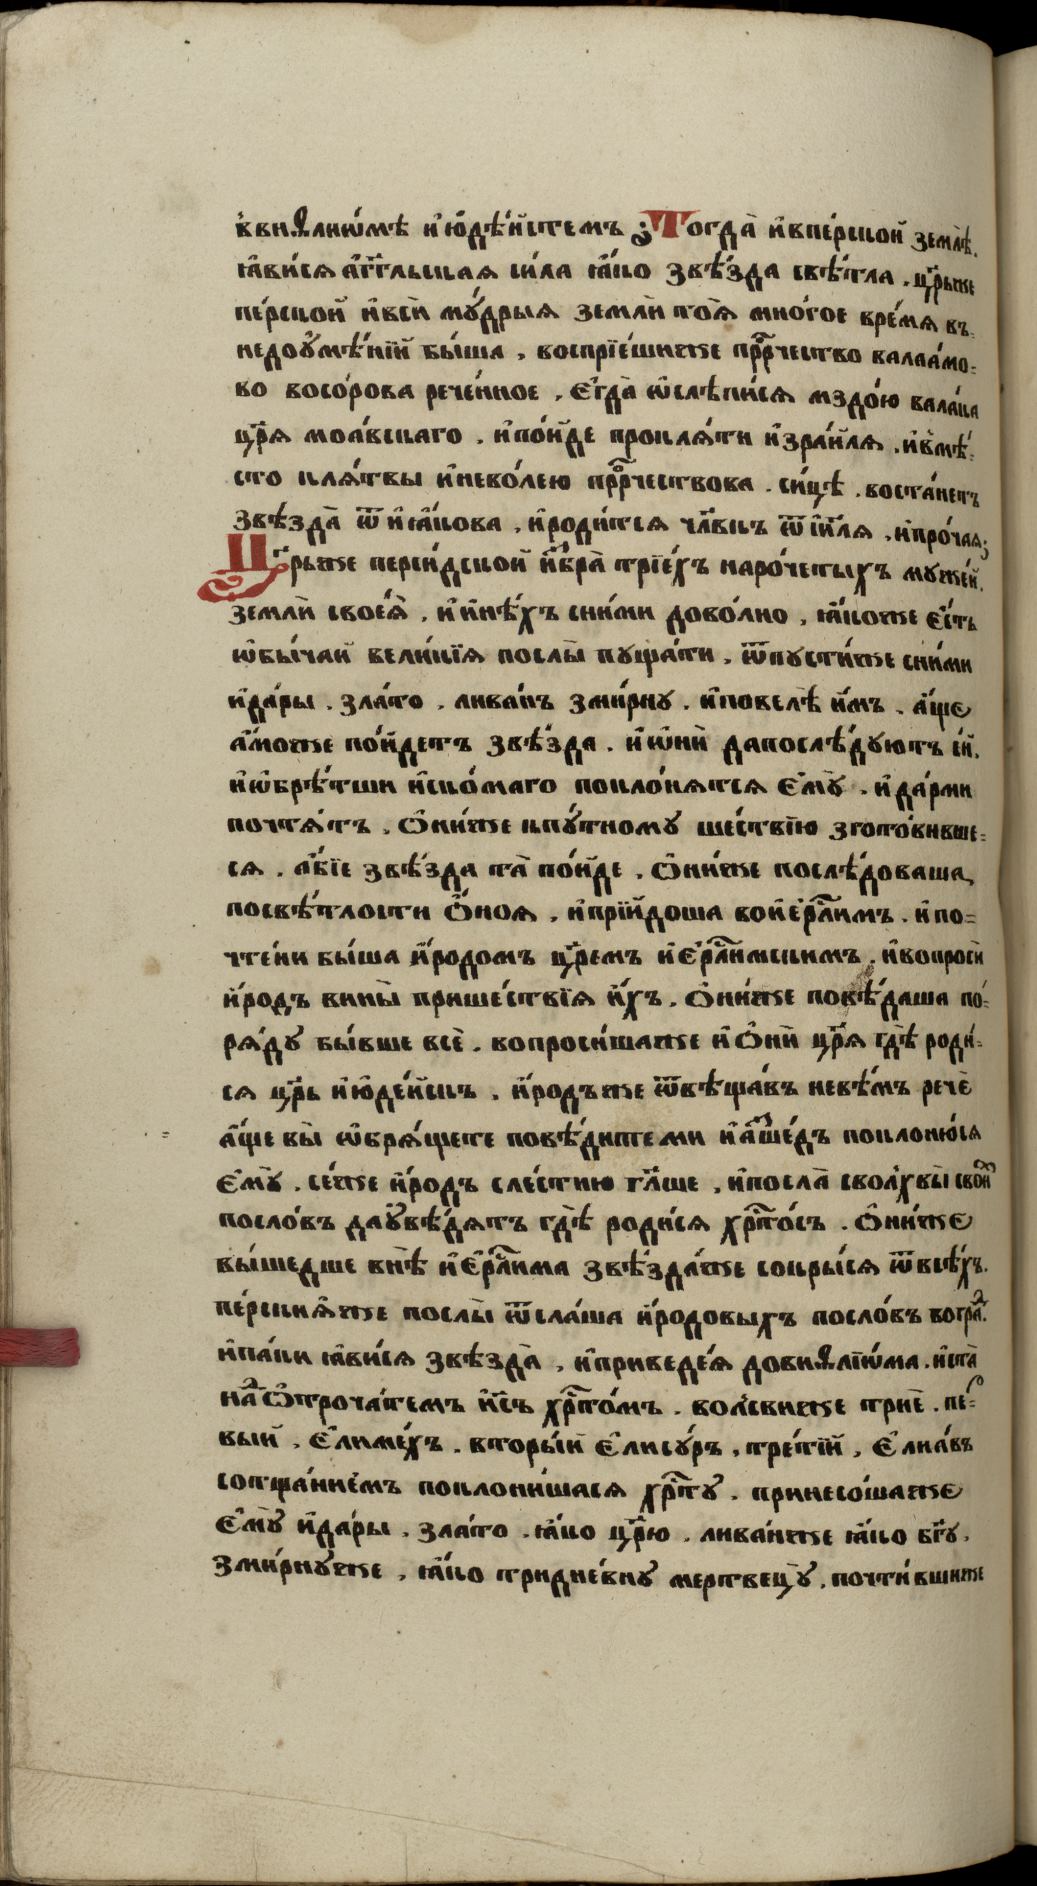 в виѳлиѡ́мѣ и҆ ю҆дѣ́йстемъ ; Тогда̀ и҆ в пе́рской земл̀ѣ.
ꙗ҆ви́сѧ а҆́г҃гльская си́ла ꙗ҆́ко ѕвѣ́зда свѣ́тла . цр҃ьже
пе́рской и҆ вси̑ мꙋ́дрыя земли̑ тоѧ̀ мно́гое вре́мѧ въ
недоꙋмѣ́нїй бы́ша , воспрїе́мшиже прⷪ҇ро́чество валаа́мо=
во восо́рова рече́нное , є҆гда̀ ѡ҆слѣпи́сѧ мздо́ю вала́ка
цр҃ѧ̀ моа́вскаго . и҆ по́йде прокля́ти и҆зра́йлѧ . и҆ в мѣ́=
сто кля́твы и҆ нево́лею прⷪ҇ро́чествова . си́цѣ . воста́нетъ
ѕвѣзда̀ ѿ и҆ꙗ́кова , и҆ роди́тсѧ чл҃вкъ ѿ і҆и҃лѧ , и҆ про́чая ;
Цр҃ьже перси́дской и҆ꙁбра̀ трїе́хъ наро́четыхъ мꙋже́й
земли̑ своеѧ̀ , и҆ и҆нѣ́хъ с ни́ми дово́лно , ꙗ҆́коже є҆́сть
ѡ҆бы́чай вели́кїѧ послы̀ пꙋща́ти , ѿпꙋсти́же с ни́ми
и҆ да́ры . зла́то . лива́нъ зми́рнꙋ . и҆ повелѣ̀ и҆̀мъ . а҆́ще
а҆́може по́йдетъ ѕвѣ́зда . и҆ ѡ҆ни̑ да послѣ́дꙋютъ є҆́й.
и҆ ѡ҆брѣ́тши и҆ско́маго покло́нѧтсѧ є҆мꙋ̀ . и҆ да́рми
почтѧ́тъ . Ѻ҆ни́же к пꙋ́тномꙋ ше́ствїю зготови́вше=
сѧ . а҆́бїе ѕвѣ́зда та̀ по́йде , ѻ҆ни́же послѣ́доваша
по свѣ́тлости ѻ҆́ноѧ , и҆ прїйдо́ша во и҆єрⷭ҇ли́мъ . и҆ по=
чте́ни бы́ша и҆́родомъ цр҃е́мъ и҆єрⷭ҇ли́мскимъ . и҆ вопроси̑
и҆́родъ вины̀ прише́ствїѧ и҆́хъ . Ѻ҆ни́же повѣ́даша по=
рѧ́дꙋ бы́вше всѐ . вопроси́шаже и҆ ѻ҆ни̑ цр҃ѧ̀ гдѣ̀ роди́=
сѧ цр҃ь и҆ю҆де́йскъ . и҆́родъже ѿвѣща́въ не вѣ́мъ речѐ
а҆́ще вы̀ ѡ҆брѧ́щете повѣ́дите ми и҆ а҆́ꙁ ше́дъ поклоню́сѧ
є҆мꙋ̀ . се́же и҆́родъ с ле́стию гл҃аше , и҆ посла̀ с волхвы̀ свои́х
посло́въ да ꙋ҆вѣ́дѧтъ гдѣ̀ роди́сѧ хрⷭ҇то́съ . Ѻ҆ни́же
вы́шедше в нѣ̀ и҆єрⷭ҇ли́ма ѕвѣзда́же сокры́сѧ ѿ всѣ́хъ.
пе́рскиѧ́же послы̀ ѿсла́ша и҆́родовыхъ посло́въ во гра́д.
и҆ па́ки ꙗ҆ви́сѧ ѕвѣзда̀ , и҆ приведе́ѧ до виѳлїѡ́ма . и҆ ста̀
на́д ѻ҆троча́темъ і҆и҃съ хрⷭ҇то́мъ . волсви́же трие̑ . пе́р=
вый , є҆лиме́хъ . вторы́й є҆лисꙋ́ръ , тре́тїй , є҆лиа́въ
со тща́ниемъ поклони́шасѧ хрⷭ҇тꙋ̀ . принесо́шаже
є҆мꙋ̀ и҆ да́ры . зла́то . ꙗ҆́ко цр҃ю̀ . лива́нже ꙗ҆́ко бг҃ꙋ .
зми́рнꙋже , ꙗ҆́ко тридне́внꙋ мертвецꙋ̀ . почти́вшиже